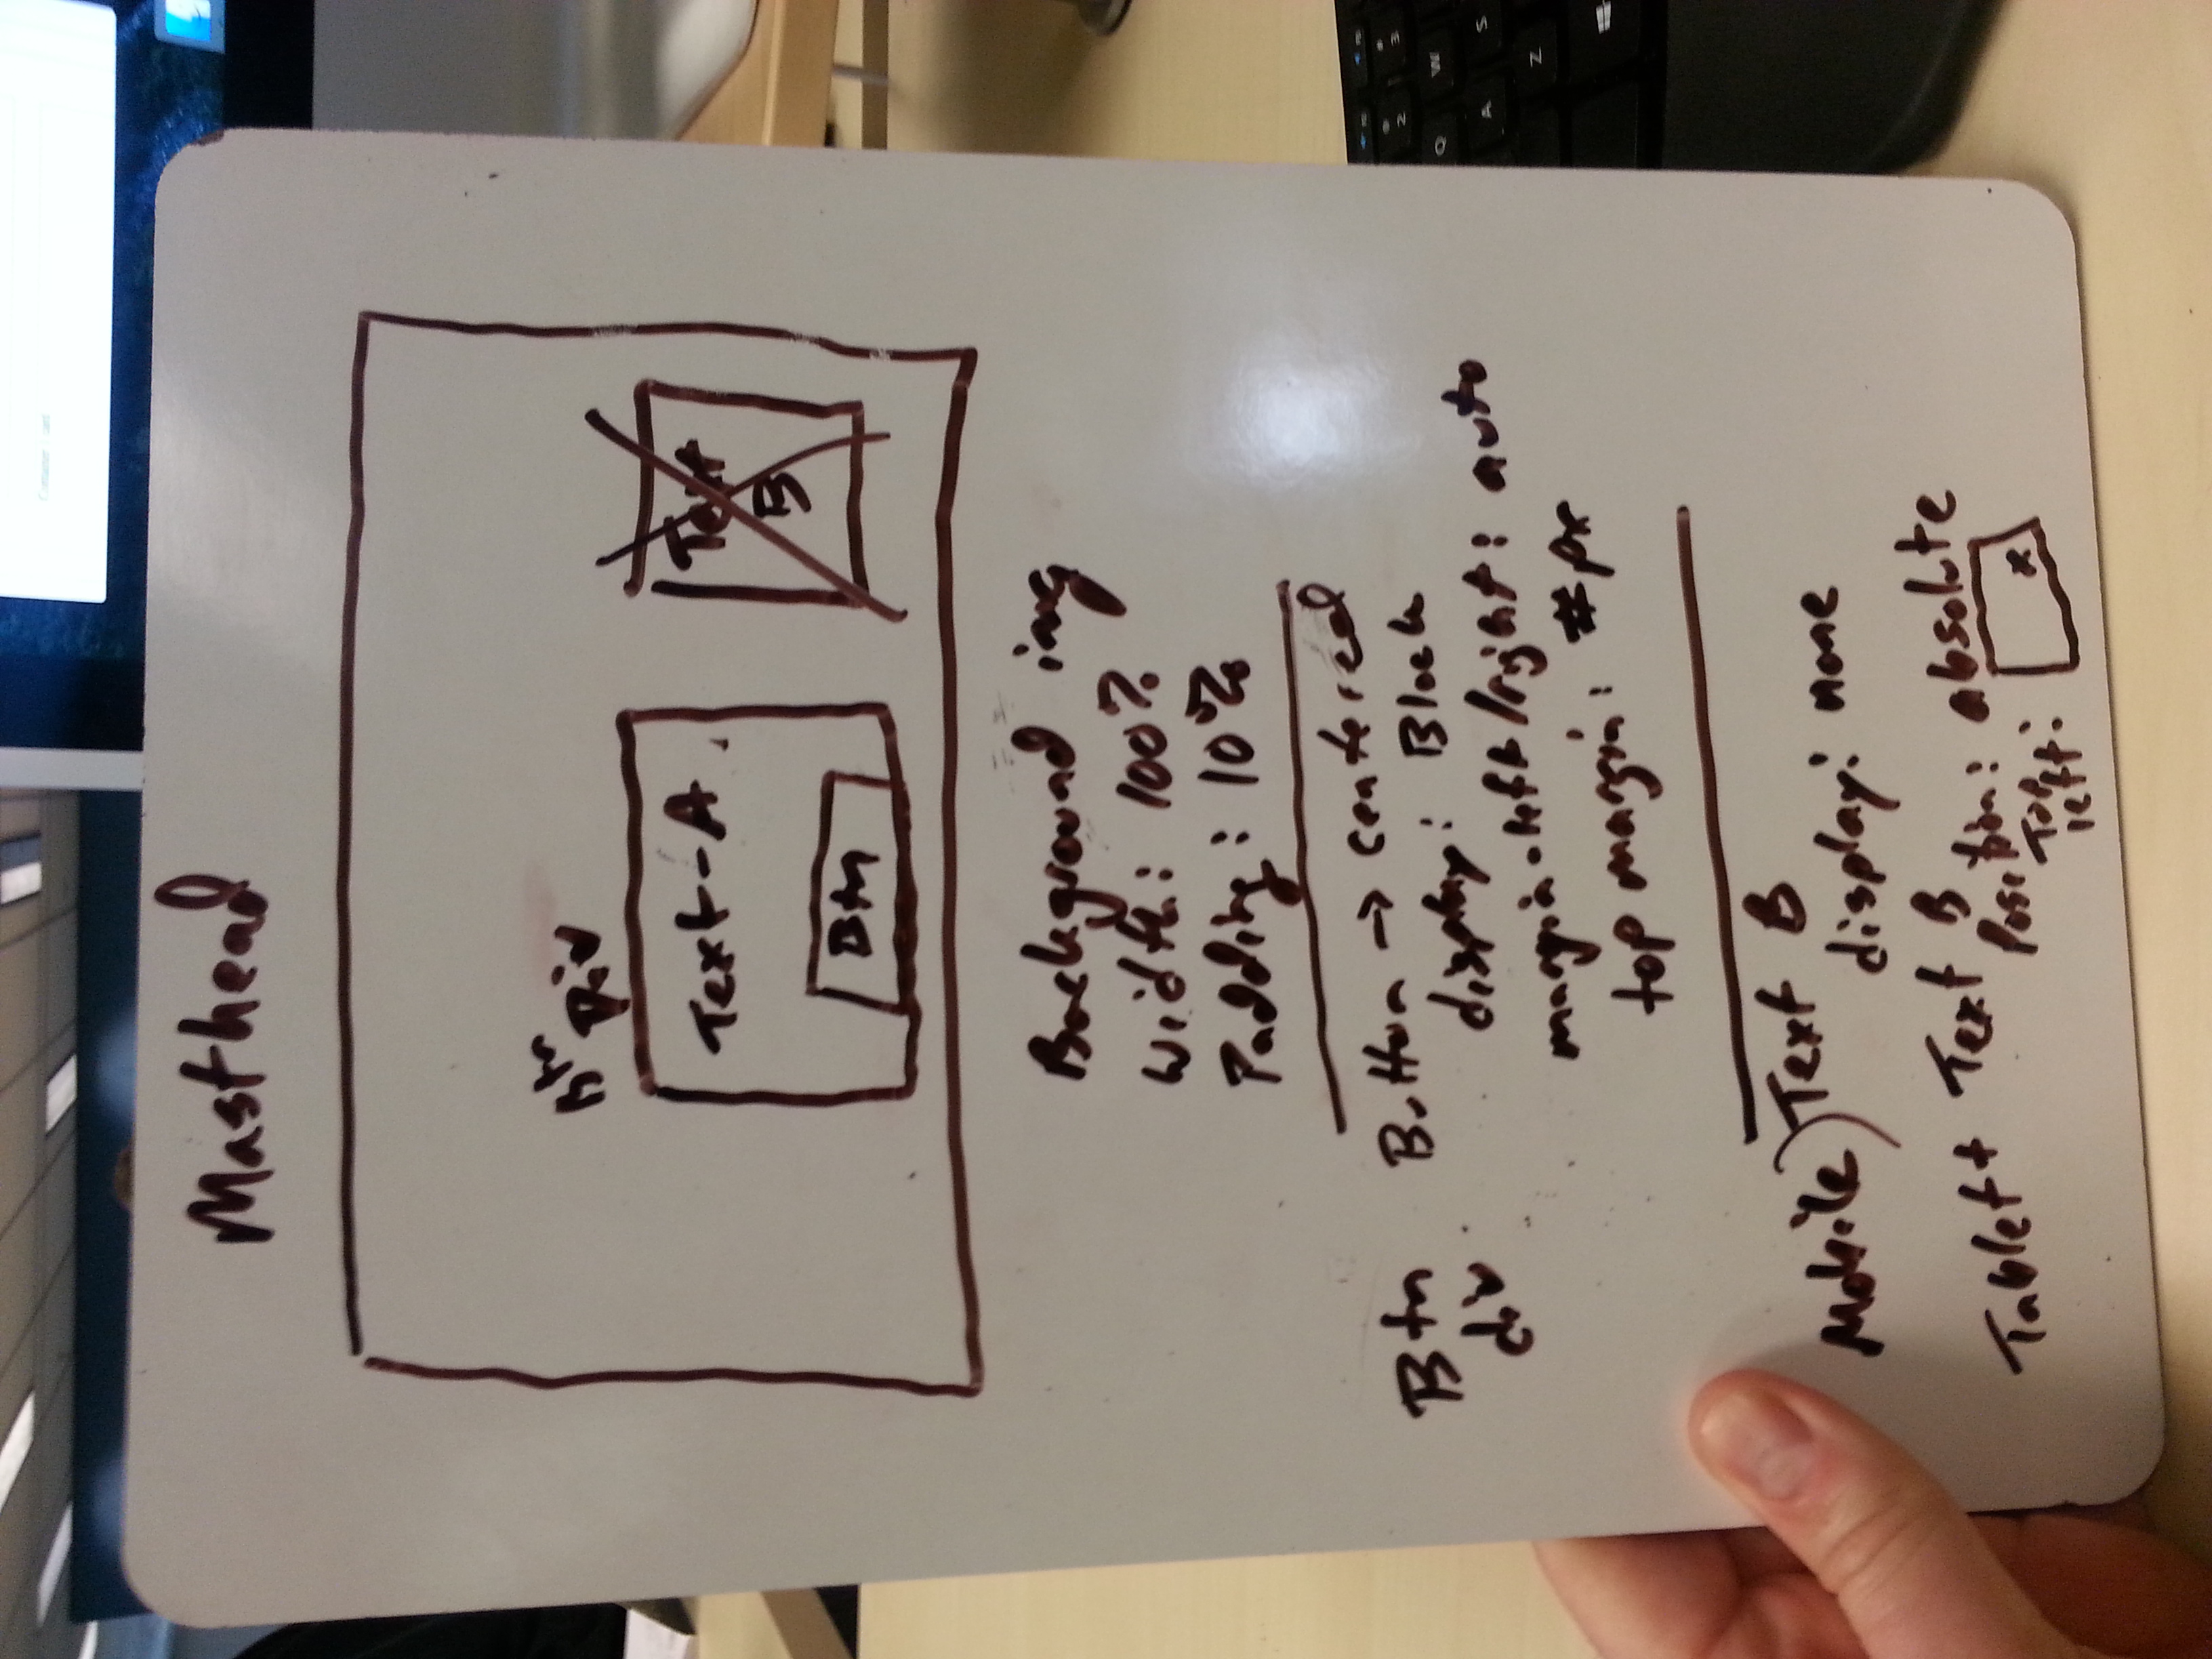 Masthead
Btn Div
Text-A
Text
B
Btn
Background img
Width: 100%
Padding: 10%
Btn
div
Button → centered
display: Block
margin-left/right: auto
top margin: #px
Mobile) Text B
display: none
Tablet+ Text B
Position: absolute
Top
left:
x
2
3
Q
W
A
S
Z